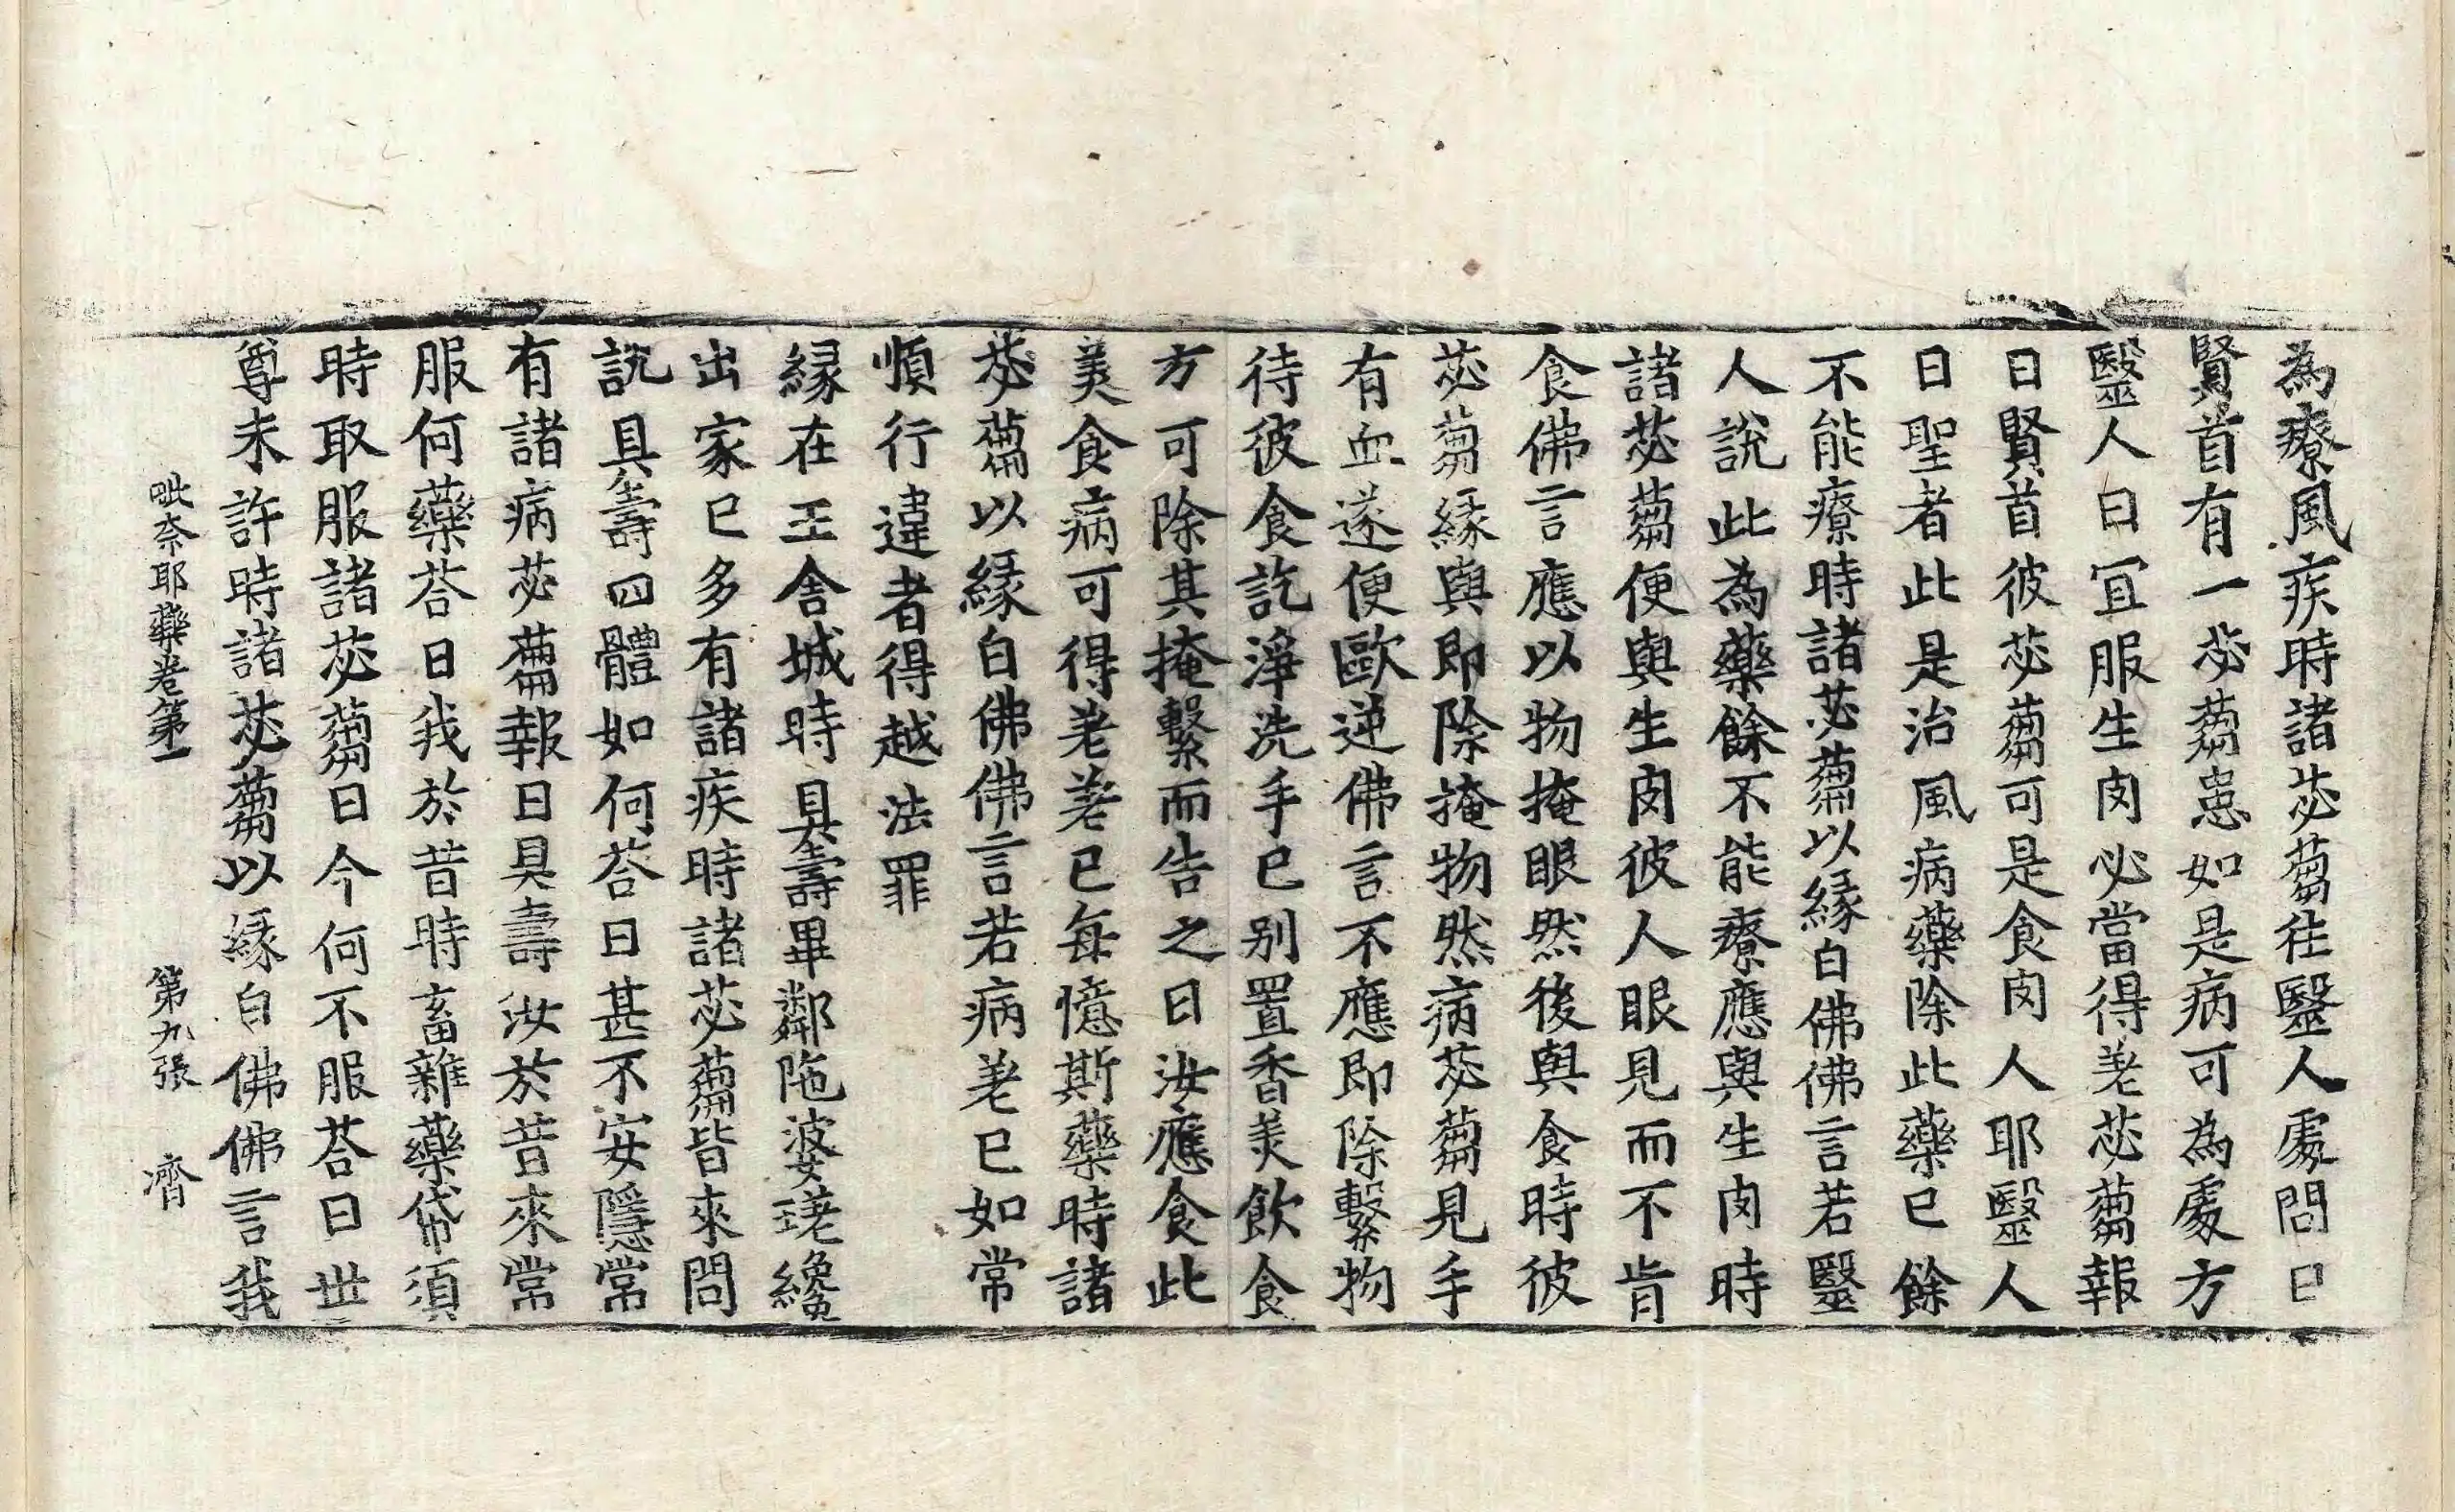 為療風疾時諸苾蒭往毉人處問曰
賢首有一苾蒭患如是病可為處方
毉人曰冝服生肉必當得差苾蒭報
曰賢首彼苾蒭可是食肉人耶毉人
曰聖者此是治風病藥除此藥已餘
不能療時諸苾蒭以縁白佛佛言若毉
人說此為藥餘不能療應與生肉時
諸苾蒭便與生肉彼人眼見而不肯
食佛言應以物掩眼然後與食時彼
苾蒭縁與即除掩物然病苾蒭見手
有血遂便歐逆佛言不應即除繫物
待彼食訖淨洗手已别置香美飲食
方可除其掩繫而告之曰汝應食此
美食病可得差差已每憶斯藥時諸
苾蒭以縁白佛佛言若病差已如常
順行違者得越法罪
縁在王舍城時具壽畢鄰陁婆蹉纔
出家已多有諸疾時諸苾蒭皆來問
說具壽四體如何荅曰甚不安隱常
有諸病苾蒭報曰具壽汝於昔來常
服何藥荅曰我於昔時畜雜藥帒須
時取服諸苾蒭曰今何不服荅曰世
尊未許時諸苾蒭以縁白佛佛言我
毗奈耶藥卷第一 第九張 濟